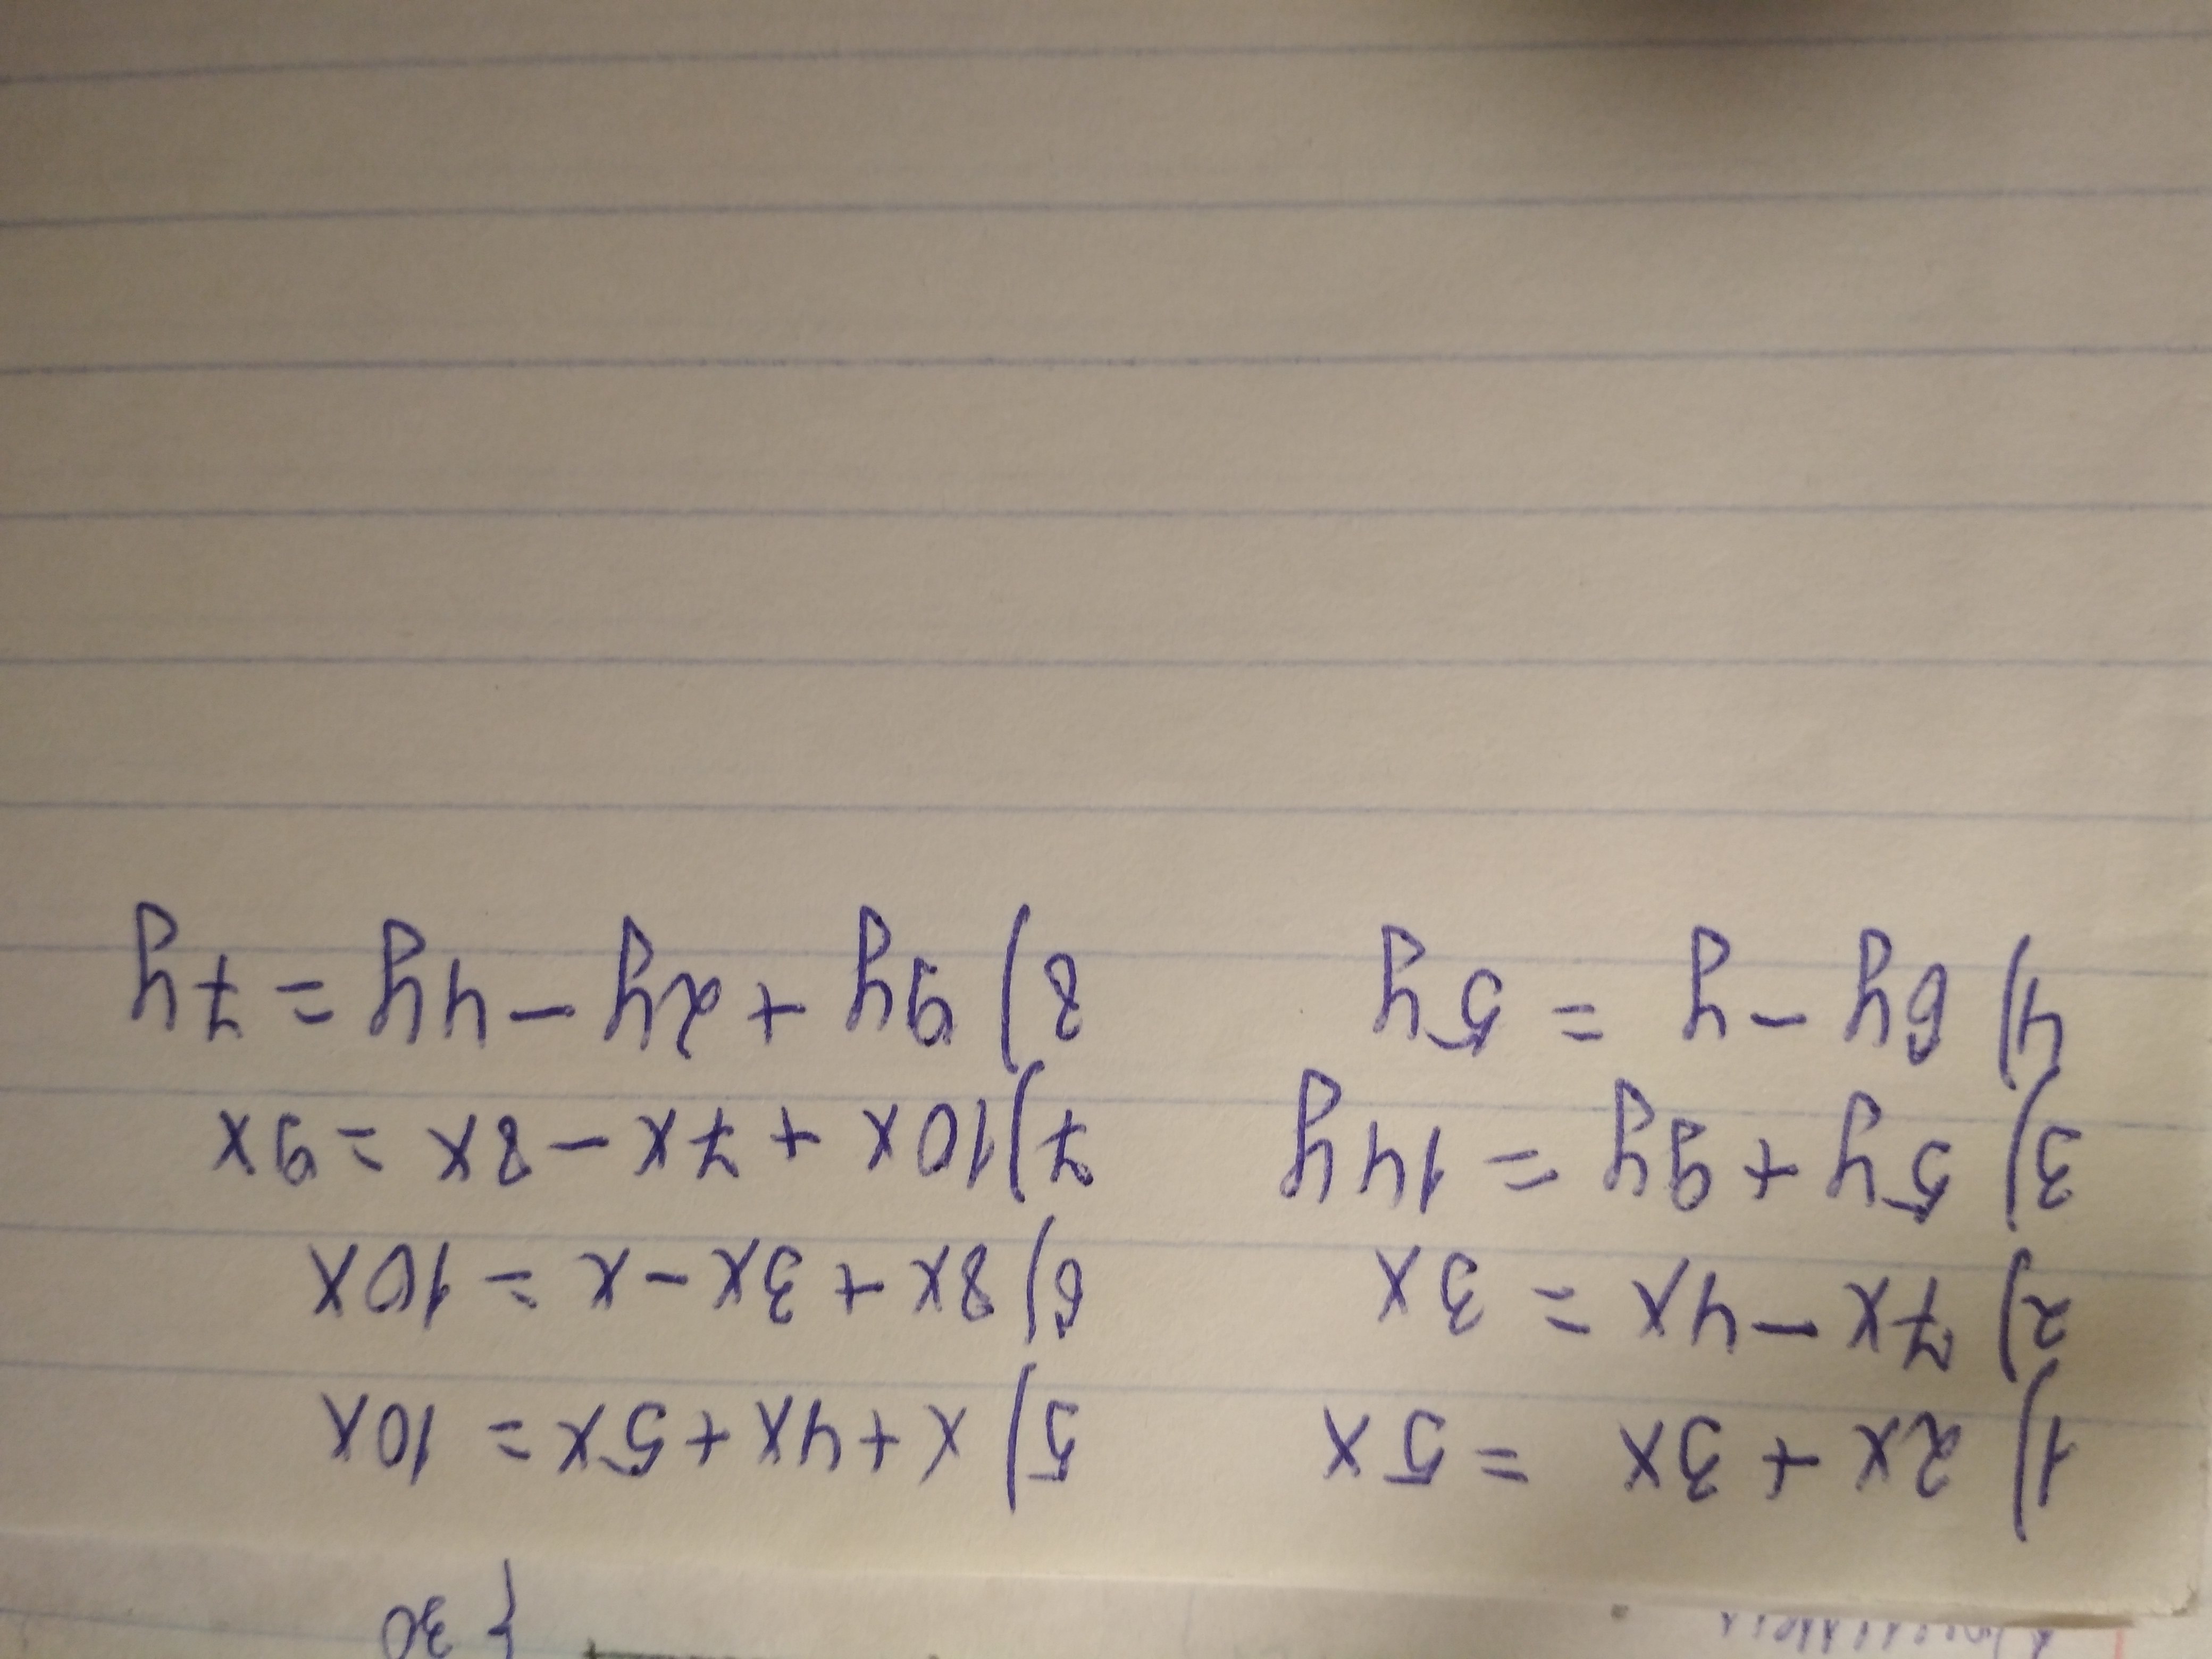 1) 2x + 3x = 5x
2) 7x - 4x = 3x
3) 5y + 9y = 14y
4) 6y - y = 5y
5) x + 4x + 5x = 10x
6) 8x + 3x - x = 10x
7) 10x + 7x - 8x = 9x
8) 9y + 2y - 4y = 7y
30